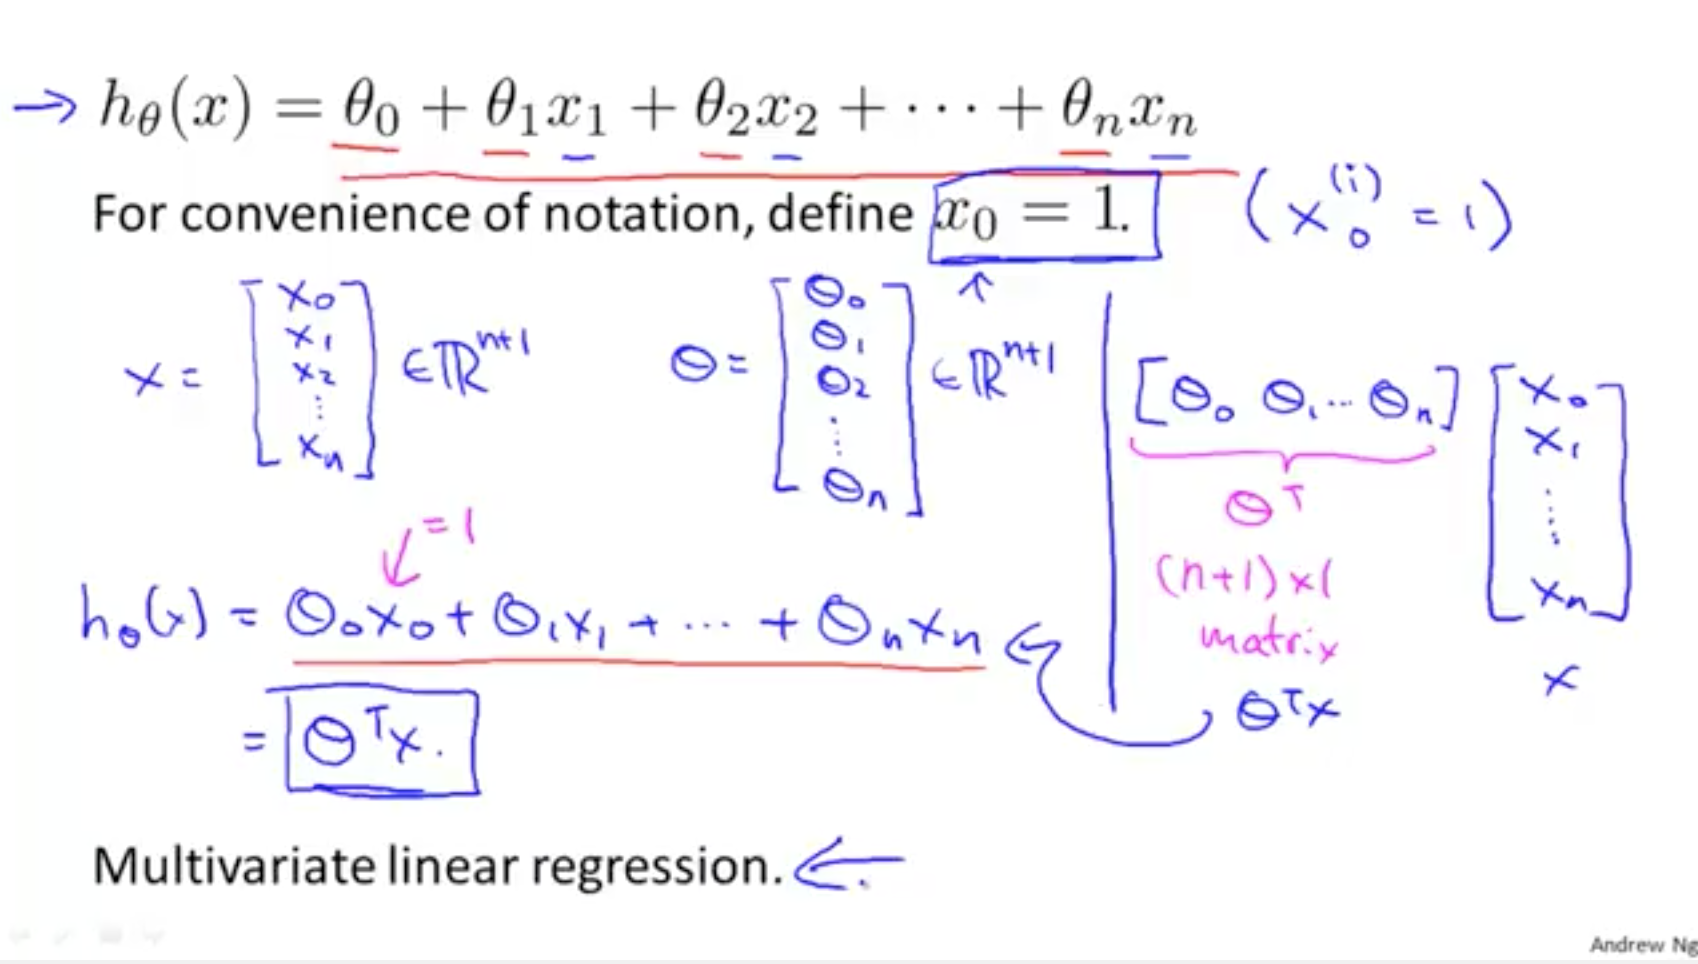 → hθ(x) = θ0 + θ1x1 + θ2x2 + ··· + θnxn
For convenience of notation, define x0 = 1. (x0^(i) = 1)
x = [x0 x1 x2 ⋮ xn] ∈ ℝ^(n+1) θ = [θ0 θ1 θ2 ⋮ θn] ∈ ℝ^(n+1)
[θ0 θ1 ... θn] [x0 x1 ⋮ xn]
θ^T
(n+1) x 1
matrix
x
θ^T x
= 1
hθ(x) = θ0x0 + θ1x1 + ... + θnxn
= θ^T x.
Multivariate linear regression. ←
Andrew Ng